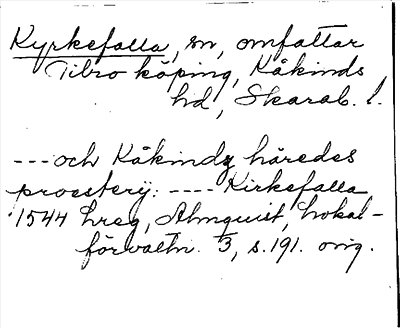 Kyrkefalla, sn, omfattar
Tibro köping, Kåkinds
hd, Skarab. l.
--- och Kåkindz häredes
proesterij: ---- Kirkefalla
1544 hreg, Almquist, Lokal-
förvaltn. 3, s. 191. orig.